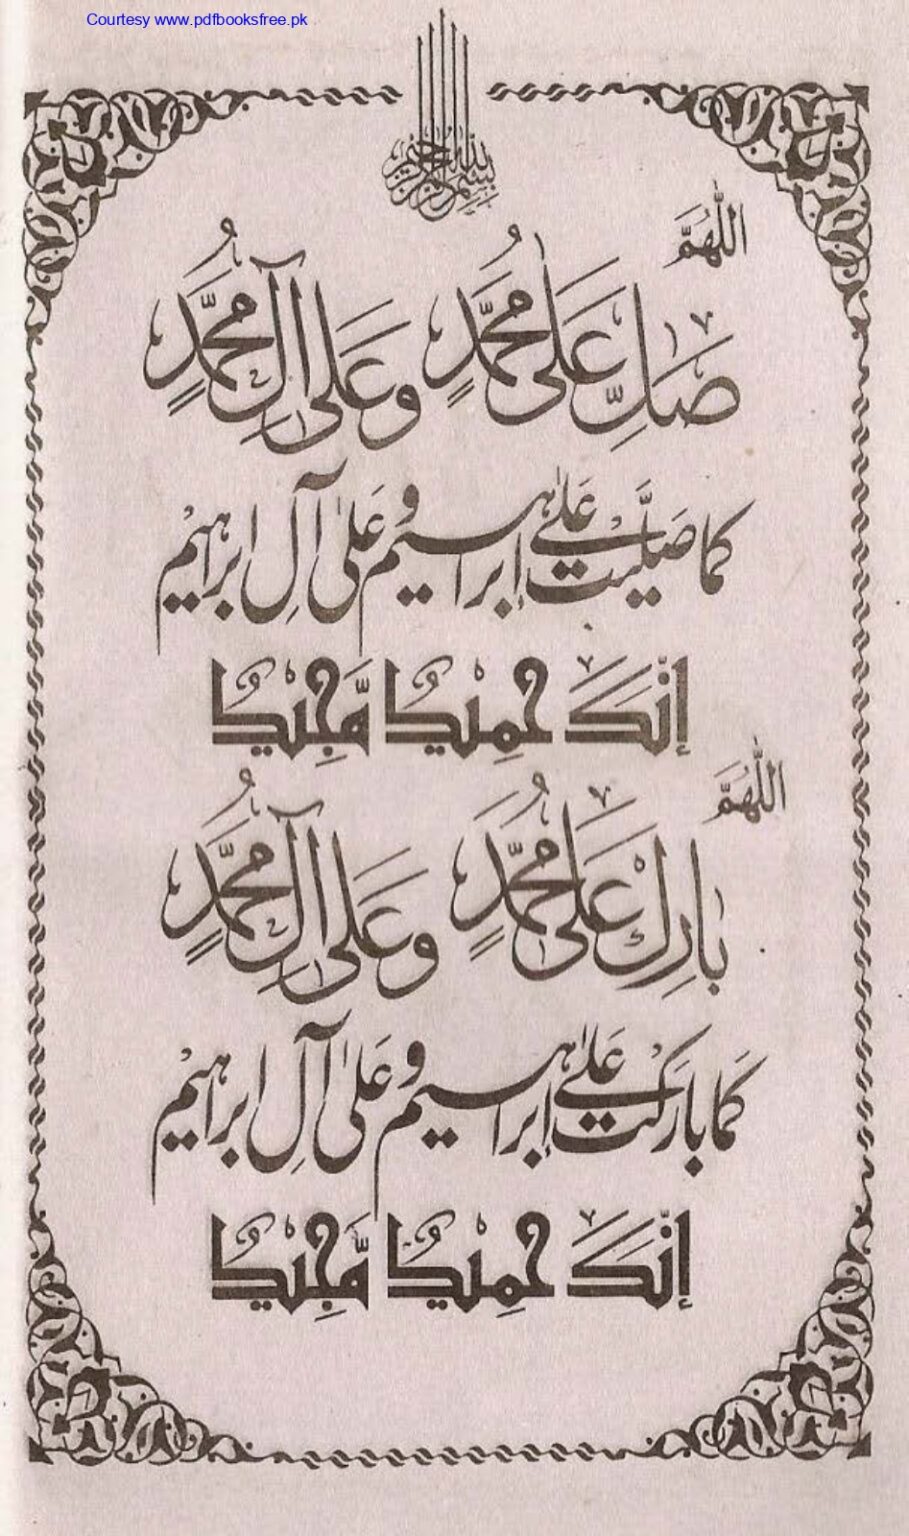 Courtesy www.pdfbooksfree.pk
بسم الله الرحمن الرحيم
اللّٰهُمَّ
صَلِّ عَلٰی مُحَمَّدٍ وَّعَلٰی اٰلِ مُحَمَّدٍ
كما صَلَّيْتَ عَلٰۤی اِبراهيم وَعَلٰی آلِ ابراهيم
اِنَّكَ حَمِيْدٌ مَّجِيْدٌ
اللّٰهُمَّ
بَارِكْ عَلٰی مُحَمَّدٍ وَّعَلٰی اٰلِ مُحَمَّدٍ
كَمَا بَارَكْتَ عَلٰۤی اِبراهيم وَعَلٰی آلِ ابراهيم
اِنَّكَ حَمِيْدٌ مَّجِيْدٌ